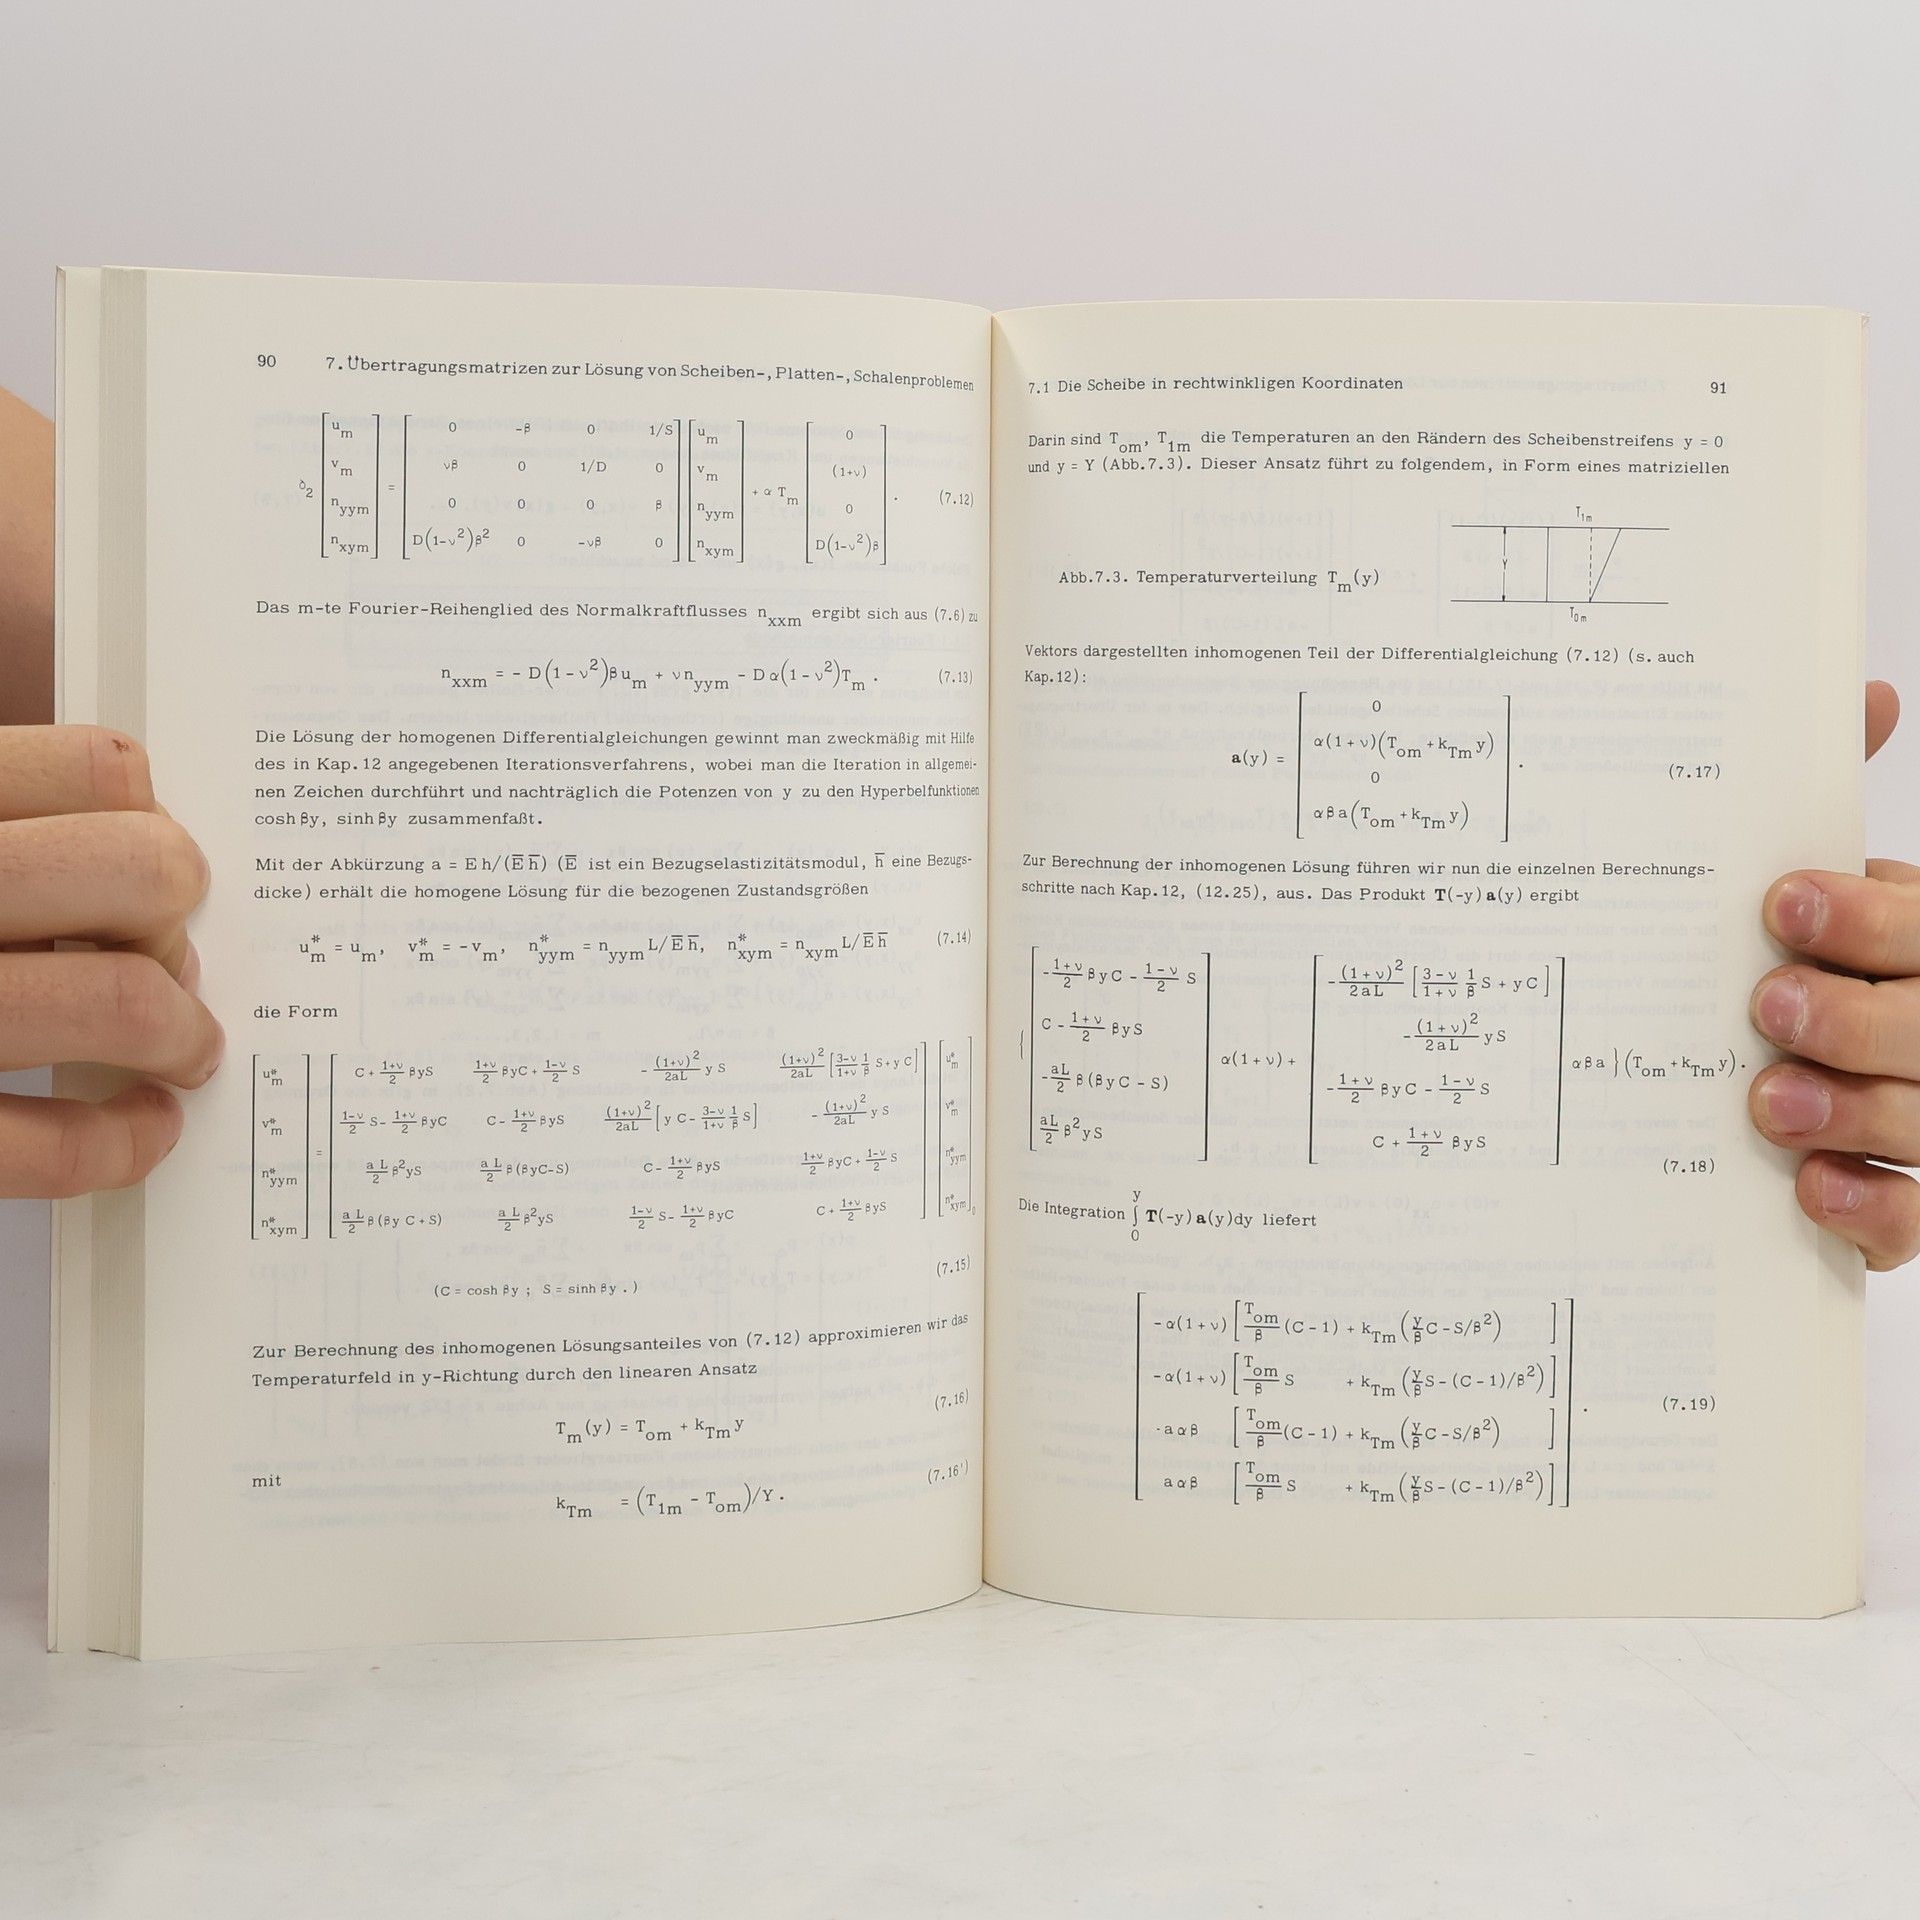 90 7. Übertragungsmatrizen zur Lösung von Scheiben-, Platten-, Schalenproblemen
∂₂ [u_m; v_m; n_yym; n_xym] = [0 -β 0 1/S; νβ 0 1/D 0; 0 0 0 β; D(1-ν²)β² 0 -νβ 0] [u_m; v_m; n_yym; n_xym] + α T_m [0; (1+ν); 0; D(1-ν²)β] . (7.12)
Das m-te Fourier-Reihenglied des Normalkraftflusses n_xxm ergibt sich aus (7.6) zu
n_xxm = - D(1-ν²)β u_m + ν n_yym - D α(1-ν²)T_m . (7.13)
Die Lösung der homogenen Differentialgleichungen gewinnt man zweckmäßig mit Hilfe
des in Kap.12 angegebenen Iterationsverfahrens, wobei man die Iteration in allgemei-
nen Zeichen durchführt und nachträglich die Potenzen von y zu den Hyperbelfunktionen
cosh βy, sinh βy zusammenfaßt.
Mit der Abkürzung a = E h/(E̅ h̅) (E̅ ist ein Bezugselastizitätsmodul, h̅ eine Bezugs-
dicke) erhält die homogene Lösung für die bezogenen Zustandsgrößen
u*_m = u_m, v*_m = -v_m, n*_yym = n_yym L/E̅ h̅, n*_xym = n_xym L/E̅ h̅ (7.14)
die Form
[u*_m; v*_m; n*_yym; n*_xym] = [C + (1+ν)/2 βyS, (1+ν)/2 βyC + (1-ν)/2 S, - (1+ν)²/2aL y S, (1+ν)²/2aL [(3-ν)/(1+ν) 1/β S + y C];
(1-ν)/2 S - (1+ν)/2 βyC, C - (1+ν)/2 βyS, (1+ν)²/2aL [y C - (3-ν)/(1+ν) 1/β S], - (1+ν)²/2aL y S;
a L/2 β²yS, a L/2 β(βyC-S), C - (1+ν)/2 βyS, (1+ν)/2 βyC + (1-ν)/2 S;
a L/2 β(βy C+S), a L/2 β²yS, (1-ν)/2 S - (1+ν)/2 βyC, C + (1+ν)/2 βyS] [u*_m; v*_m; n*_yym; n*_xym]₀
(7.15)
(C = cosh βy ; S = sinh βy .)
Zur Berechnung des inhomogenen Lösungsanteiles von (7.12) approximieren wir das
Temperaturfeld in y-Richtung durch den linearen Ansatz
T_m(y) = T_om + k_Tm y (7.16)
mit
k_Tm = (T_1m - T_om)/Y . (7.16')
7.1 Die Scheibe in rechtwinkligen Koordinaten 91
Darin sind T_om, T_1m die Temperaturen an den Rändern des Scheibenstreifens y = 0
und y = Y (Abb.7.3). Dieser Ansatz führt zu folgendem, in Form eines matriziellen
T_1m
Y
T_0m
Abb.7.3. Temperaturverteilung T_m(y)
Vektors dargestellten inhomogenen Teil der Differentialgleichung (7.12) (s. auch
Kap.12):
a(y) = [0; α(1+ν)(T_om + k_Tm y); 0; αβa(T_om + k_Tm y)] . (7.17)
Zur Berechnung der inhomogenen Lösung führen wir nun die einzelnen Berechnungs-
schritte nach Kap.12, (12.25), aus. Das Produkt T(-y)a(y) ergibt
{ [- (1+ν)/2 βyC - (1-ν)/2 S; C - (1+ν)/2 βyS; - aL/2 β(βyC - S); aL/2 β²yS] α(1+ν) + [- (1+ν)²/2aL [(3-ν)/(1+ν) 1/β S + yC]; - (1+ν)²/2aL yS; - (1+ν)/2 βyC - (1-ν)/2 S; C + (1+ν)/2 βyS] αβa } (T_om + k_Tm y) .
(7.18)
Die Integration ∫₀^y T(-y)a(y)dy liefert
[-α(1+ν) [T_om/β (C-1) + k_Tm (y/β C - S/β²)];
-α(1+ν) [T_om/β S + k_Tm (y/β S - (C-1)/β²)];
-aαβ [T_om/β (C-1) + k_Tm (y/β C - S/β²)];
aαβ [T_om/β S + k_Tm (y/β S - (C-1)/β²)]] . (7.19)